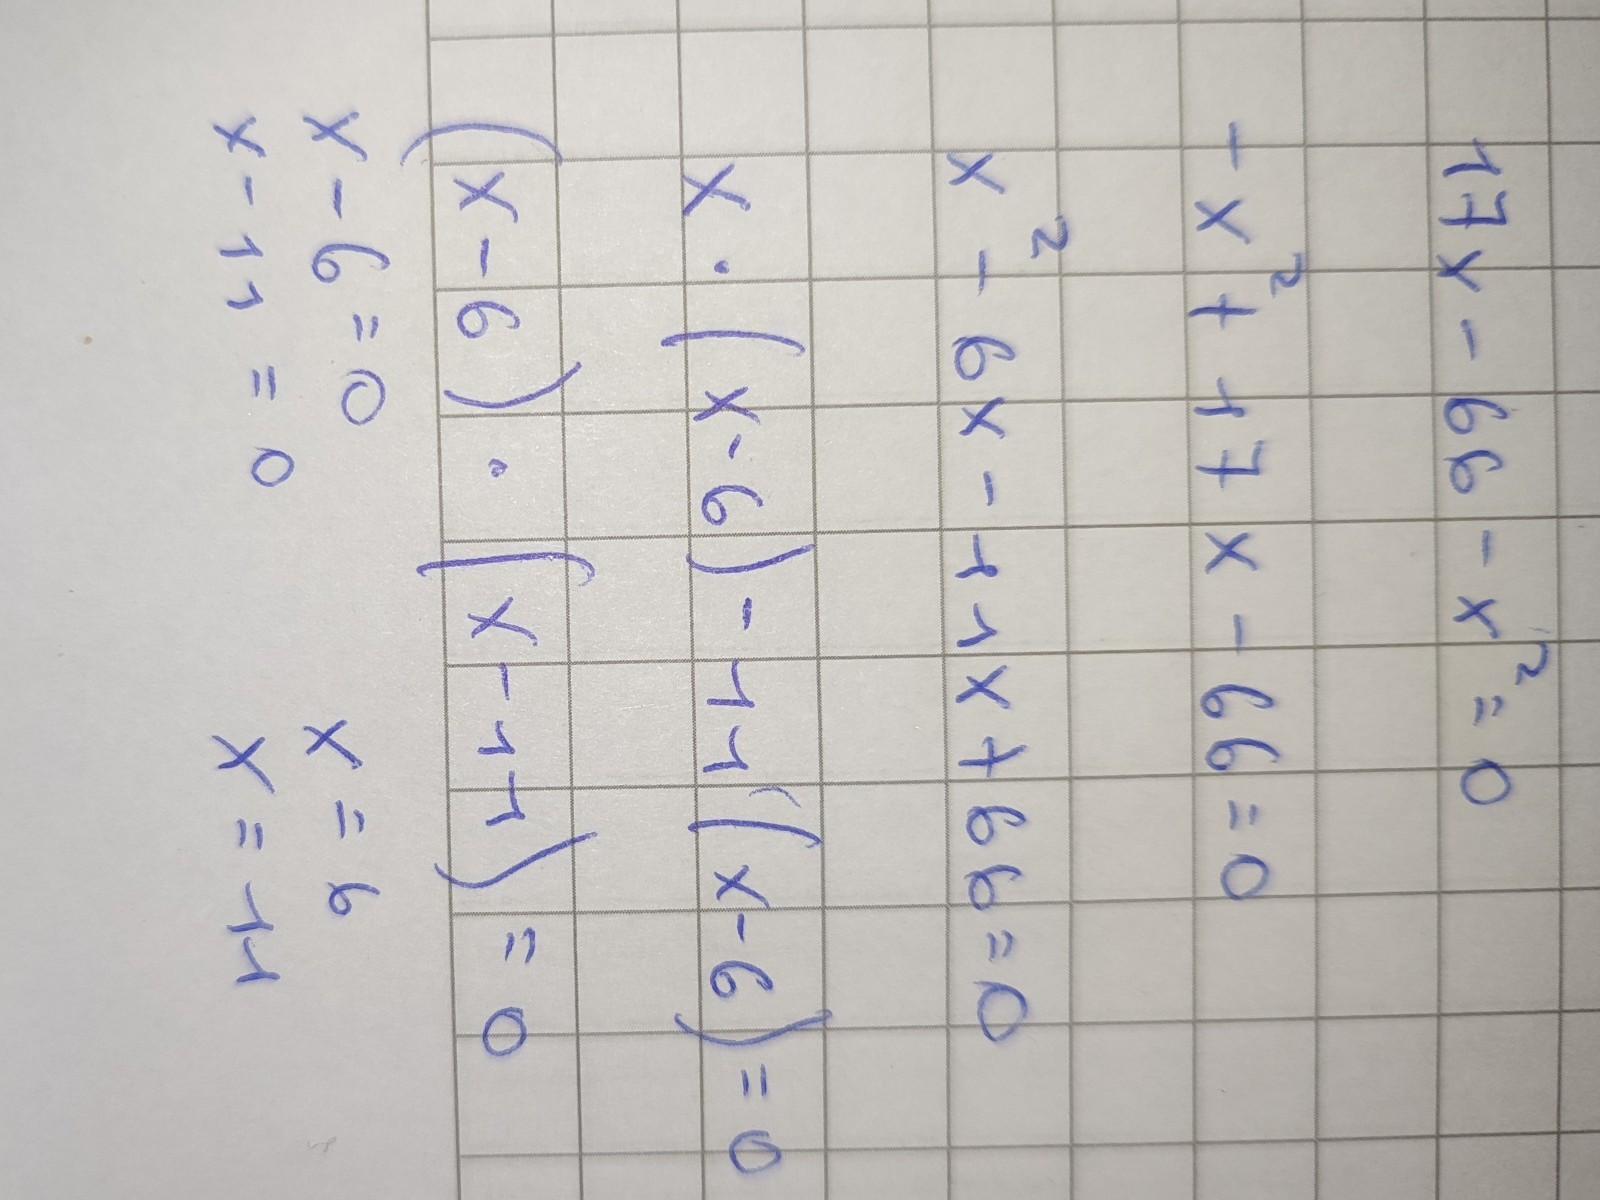 17x - 66 - x² = 0
- x² + 17x - 66 = 0
x² - 6x - 11x + 66 = 0
x · (x - 6) - 11(x - 6) = 0
(x - 6) · (x - 11) = 0
x - 6 = 0 x = 6
x - 11 = 0 x = 11